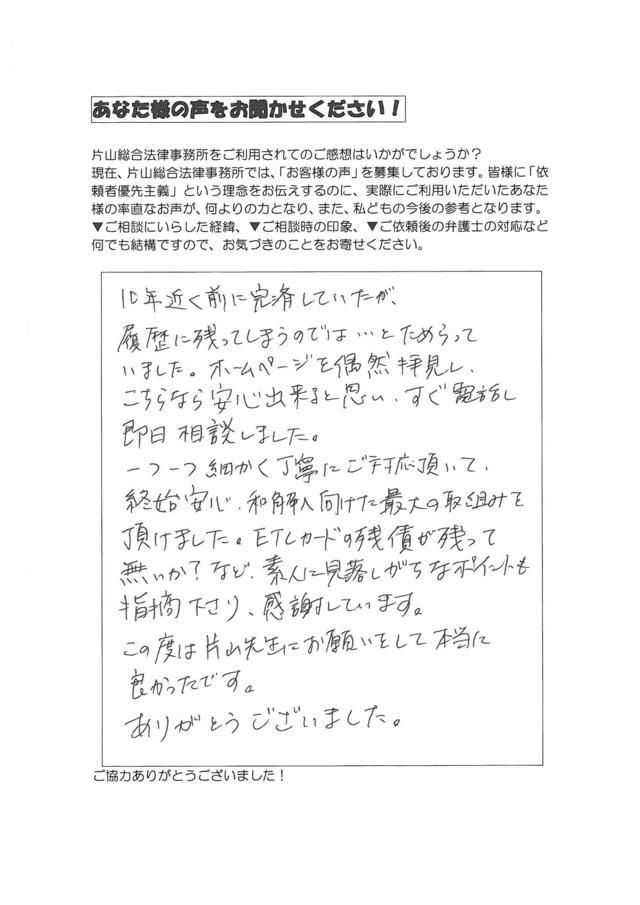 あなた様の声をお聞かせください！
片山総合法律事務所をご利用されてのご感想はいかがでしょうか？
現在、片山総合法律事務所では、「お客様の声」を募集しております。皆様に「依
頼者優先主義」という理念をお伝えするのに、実際にご利用いただいたあなた
様の率直なお声が、何よりの力となり、また、私どもの今後の参考となります。
▼ご相談にいらした経緯、▼ご相談時の印象、▼ご依頼後の弁護士の対応など
何でも結構ですので、お気づきのことをお寄せください。
10年近く前に完済していたが、
履歴に残ってしまうのでは…とためらって
いました。ホームページを偶然拝見し、
こちらなら安心出来ると思い、すぐ電話し
即日相談しました。
一つ一つ細かく丁寧にご対応頂いて、
終始安心、和解へ向けた最大の取組みを
頂けました。ETCカードの残債が残って
無いか？など、素人に見落しがちなポイントも
指摘下さり、感謝しています。
この度は片山先生にお願いをして本当に
良かったです。
ありがとうございました。
ご協力ありがとうございました！